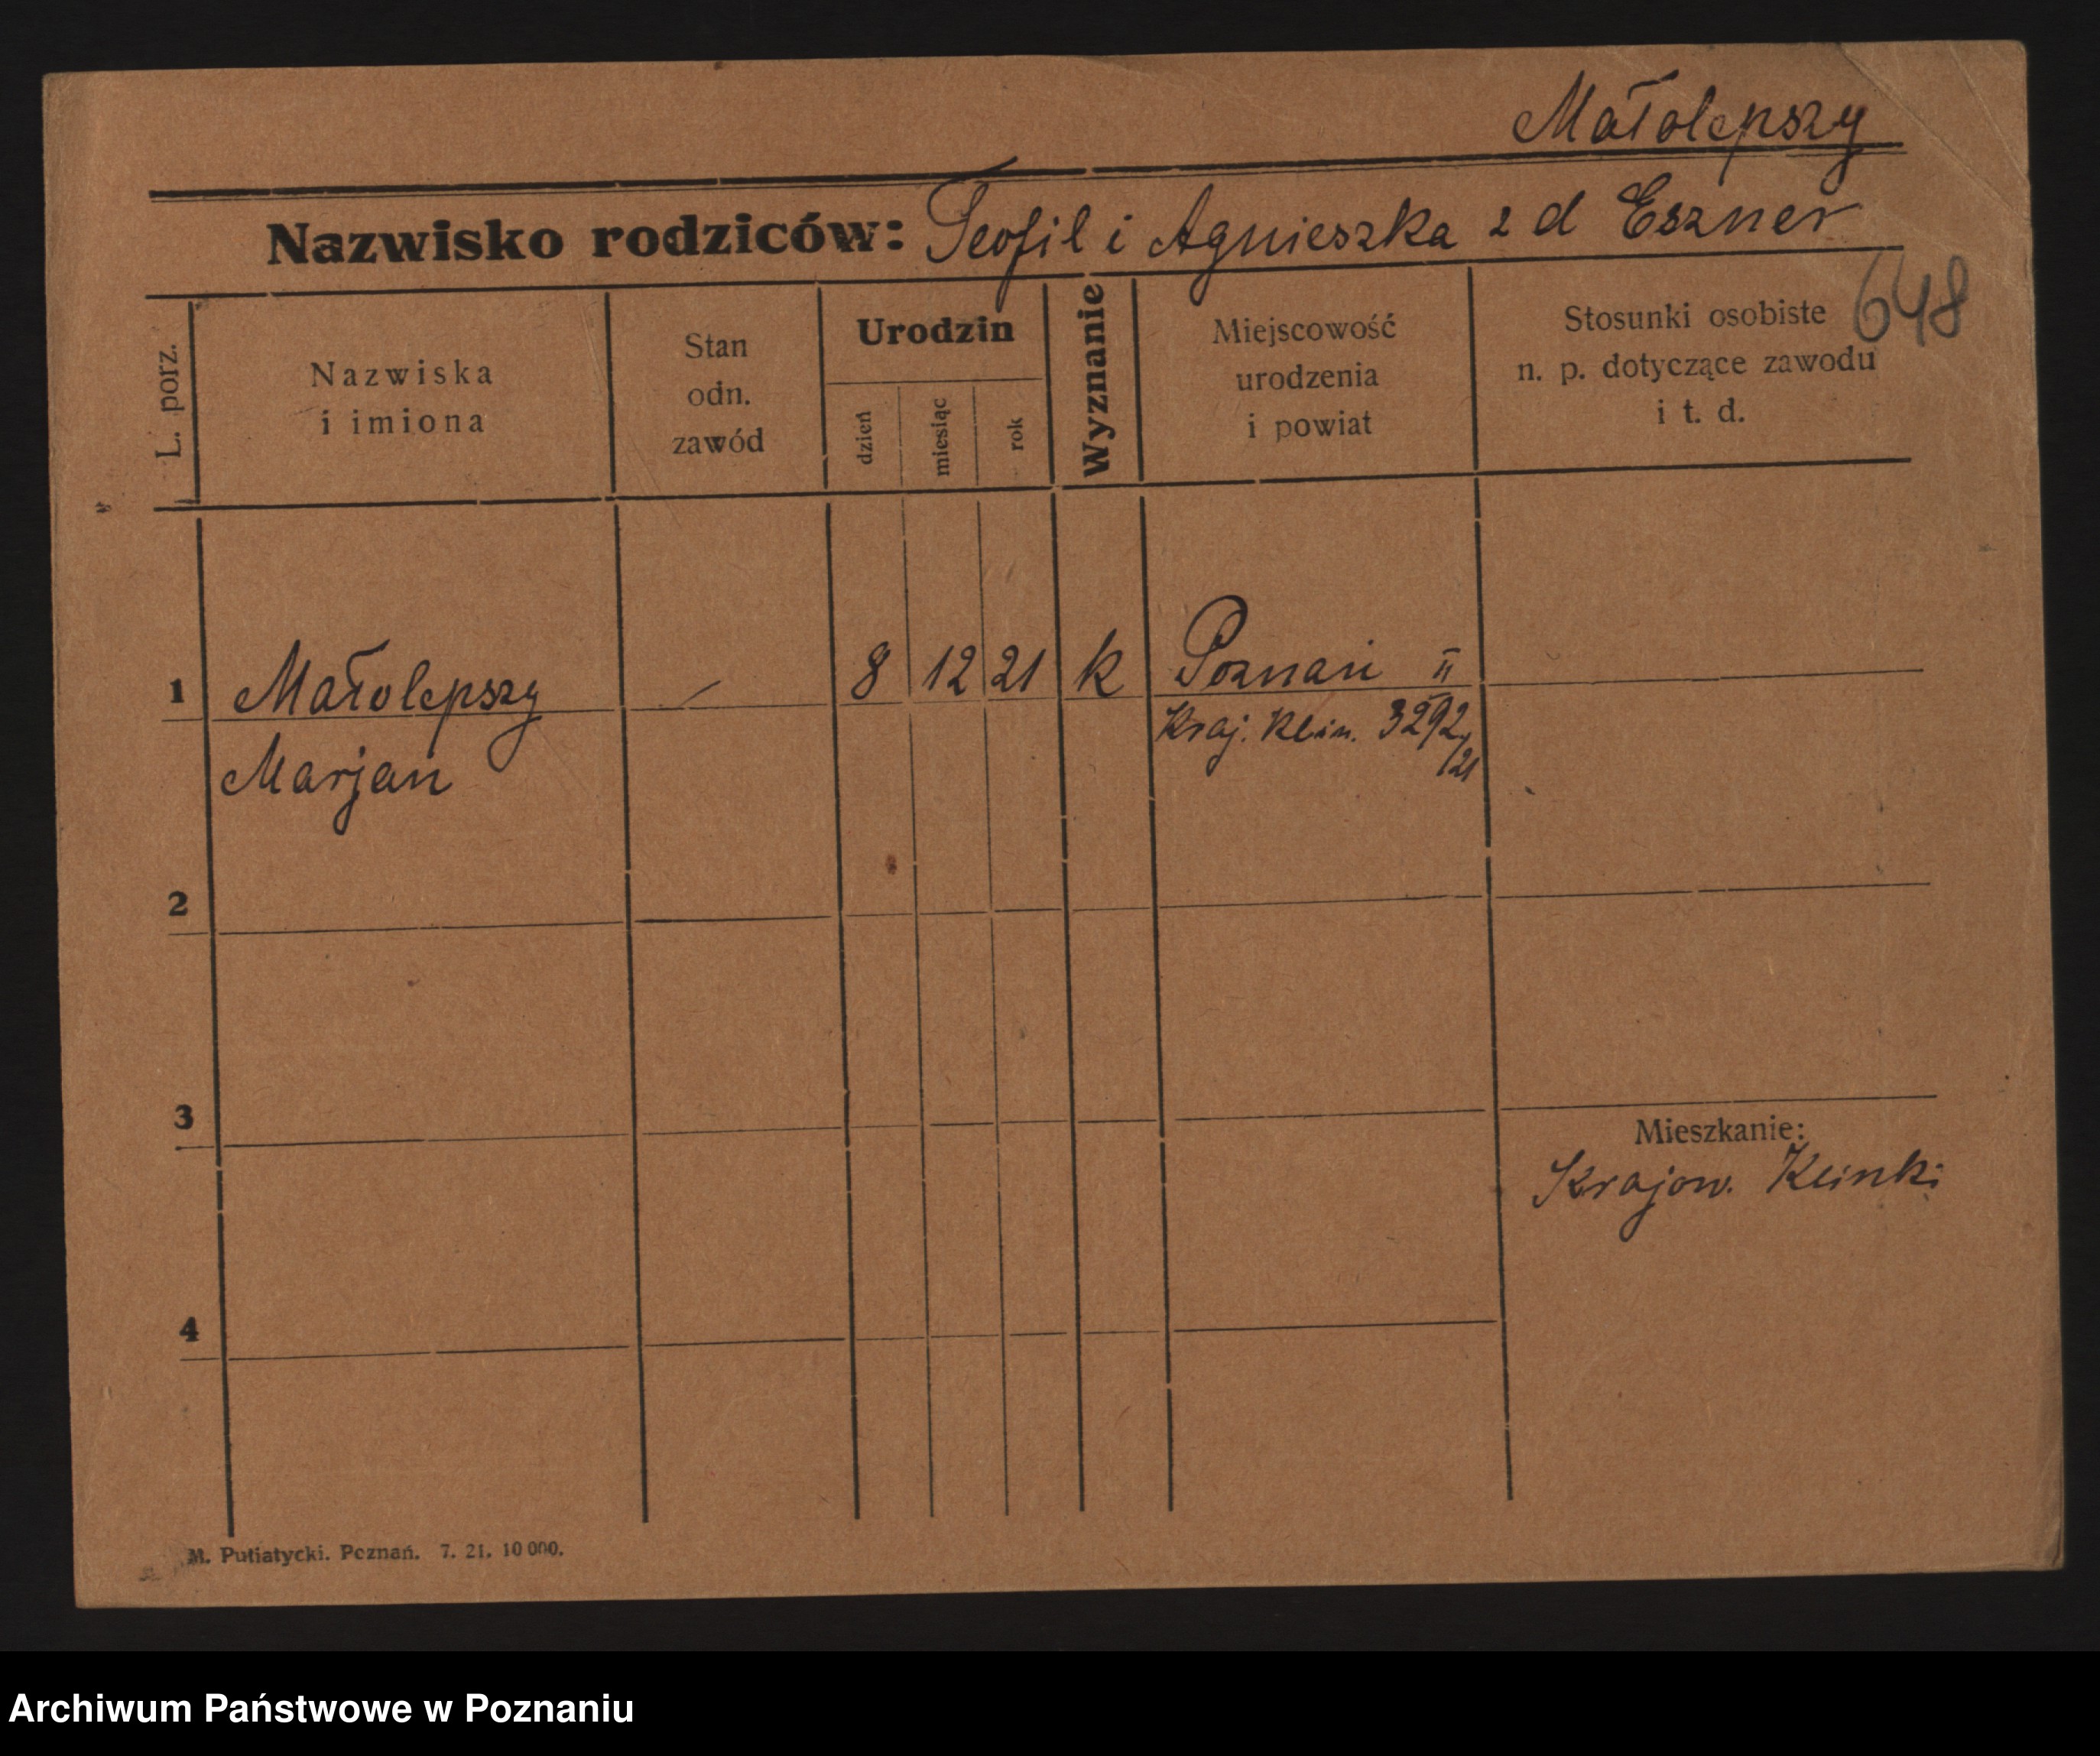 Małolepszy
Nazwisko rodziców: Teofil i Agnieszka z d Eszner
648
L. porz.
Nazwiska
i imiona
Stan
odn.
zawód
Urodzin
dzień
miesiąc
rok
Wyznanie
Miejscowość
urodzenia
i powiat
Stosunki osobiste
n. p. dotyczące zawodu
i t. d.
1 Małolepszy 8 12 21 k Poznań II
Marjan Kraj. Klin. 3292/21
2
3
Mieszkanie:
Krajow. Kliniki
4
M. Putiatycki. Poznań. 7. 21. 10 000.
Archiwum Państwowe w Poznaniu